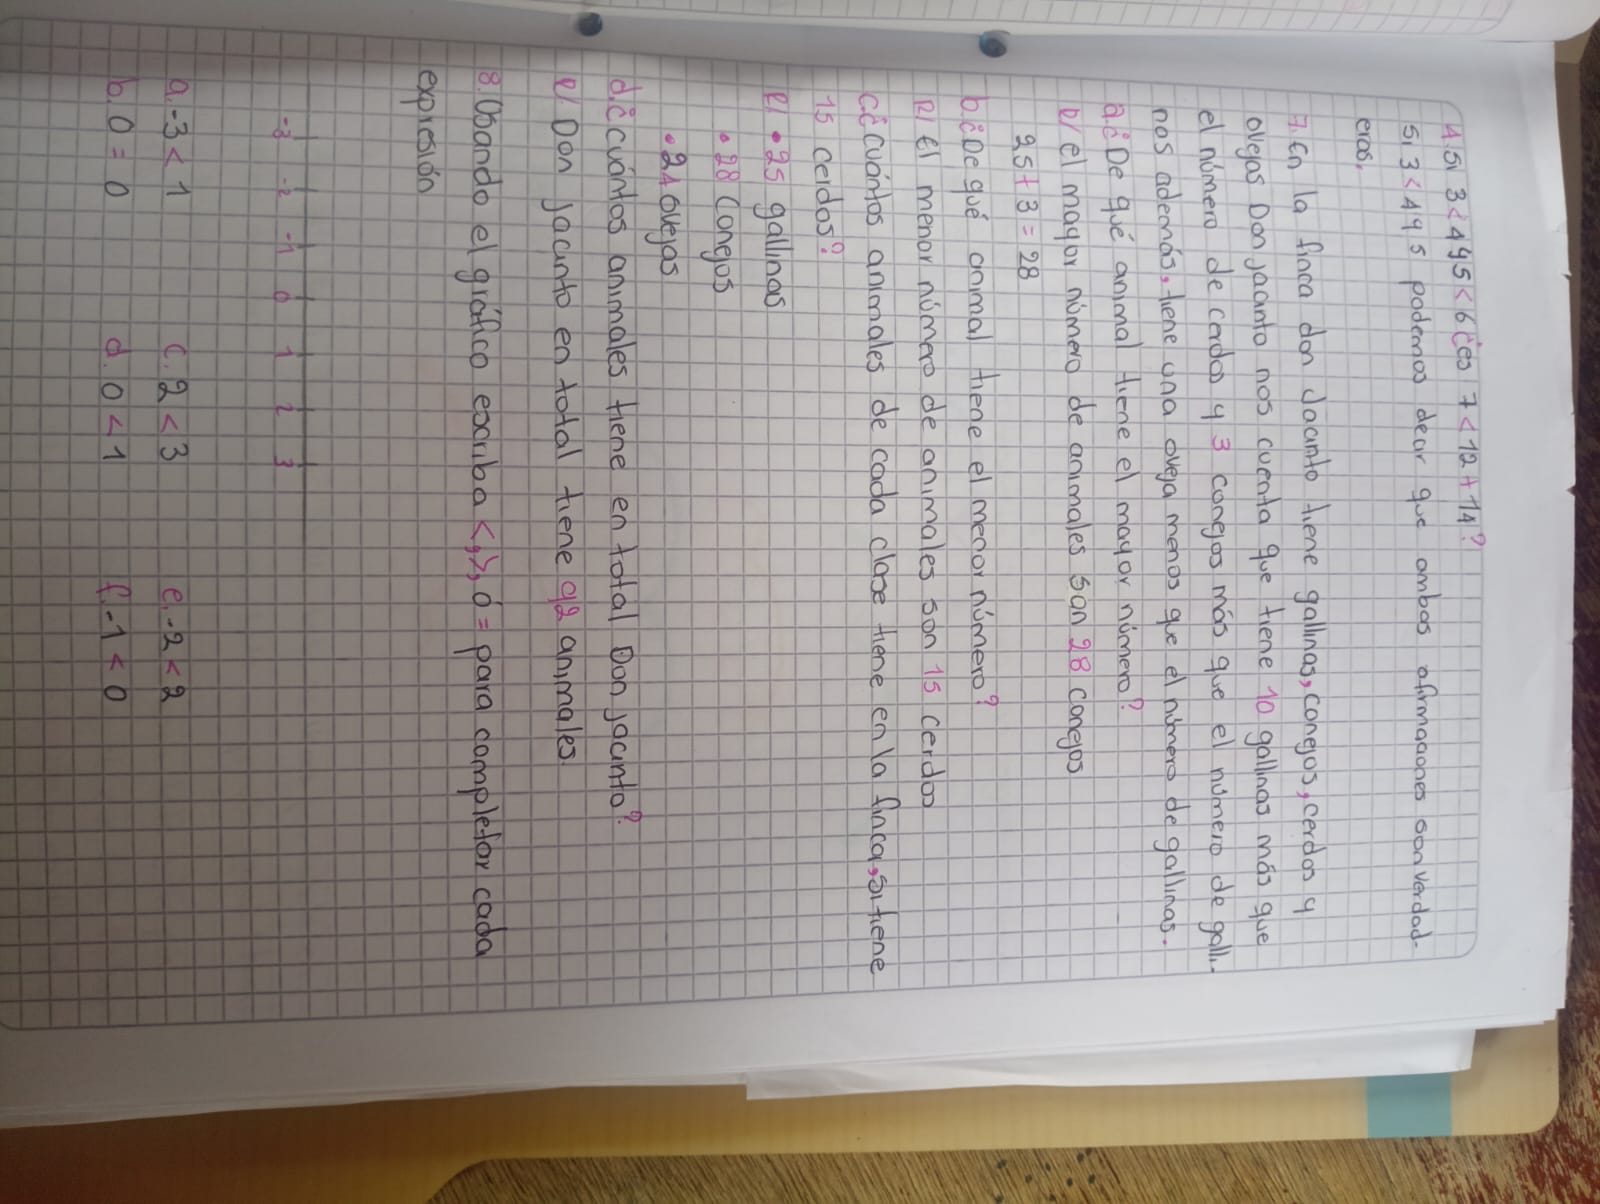 4. Si 3 < 4 y 5 < 6 ¿es 7 < 12 + 14?
Si 3 < 4 y 5 podemos decir que ambas afirmaciones son verdad-
eras.
7. En la finca don Jacinto tiene gallinas, conejos, cerdos y
ovejas Don Jacinto nos cuenta que tiene 10 gallinas más que
el número de cerdos y 3 conejos más que el número de galli-
nas además, tiene una oveja menos que el número de gallinas.
a. ¿De qué animal tiene el mayor número?
R/ el mayor número de animales son 28 conejos
25 + 3 = 28
b. ¿De qué animal tiene el menor número?
R/ El menor número de animales son 15 cerdos
c. ¿Cuántos animales de cada clase tiene en la finca, si tiene
15 cerdos?
R/ • 25 gallinas
• 28 conejos
• 24 ovejas
d. ¿Cuántos animales tiene en total Don Jacinto?
R/ Don Jacinto en total tiene 92 animales.
8. Obsando el gráfico escriba <, >, ó = para completar cada
expresión
-3 -2 -1 0 1 2 3
a. -3 < 1 c. 2 < 3 e. -2 < 2
b. 0 = 0 d. 0 < 1 f. -1 < 0